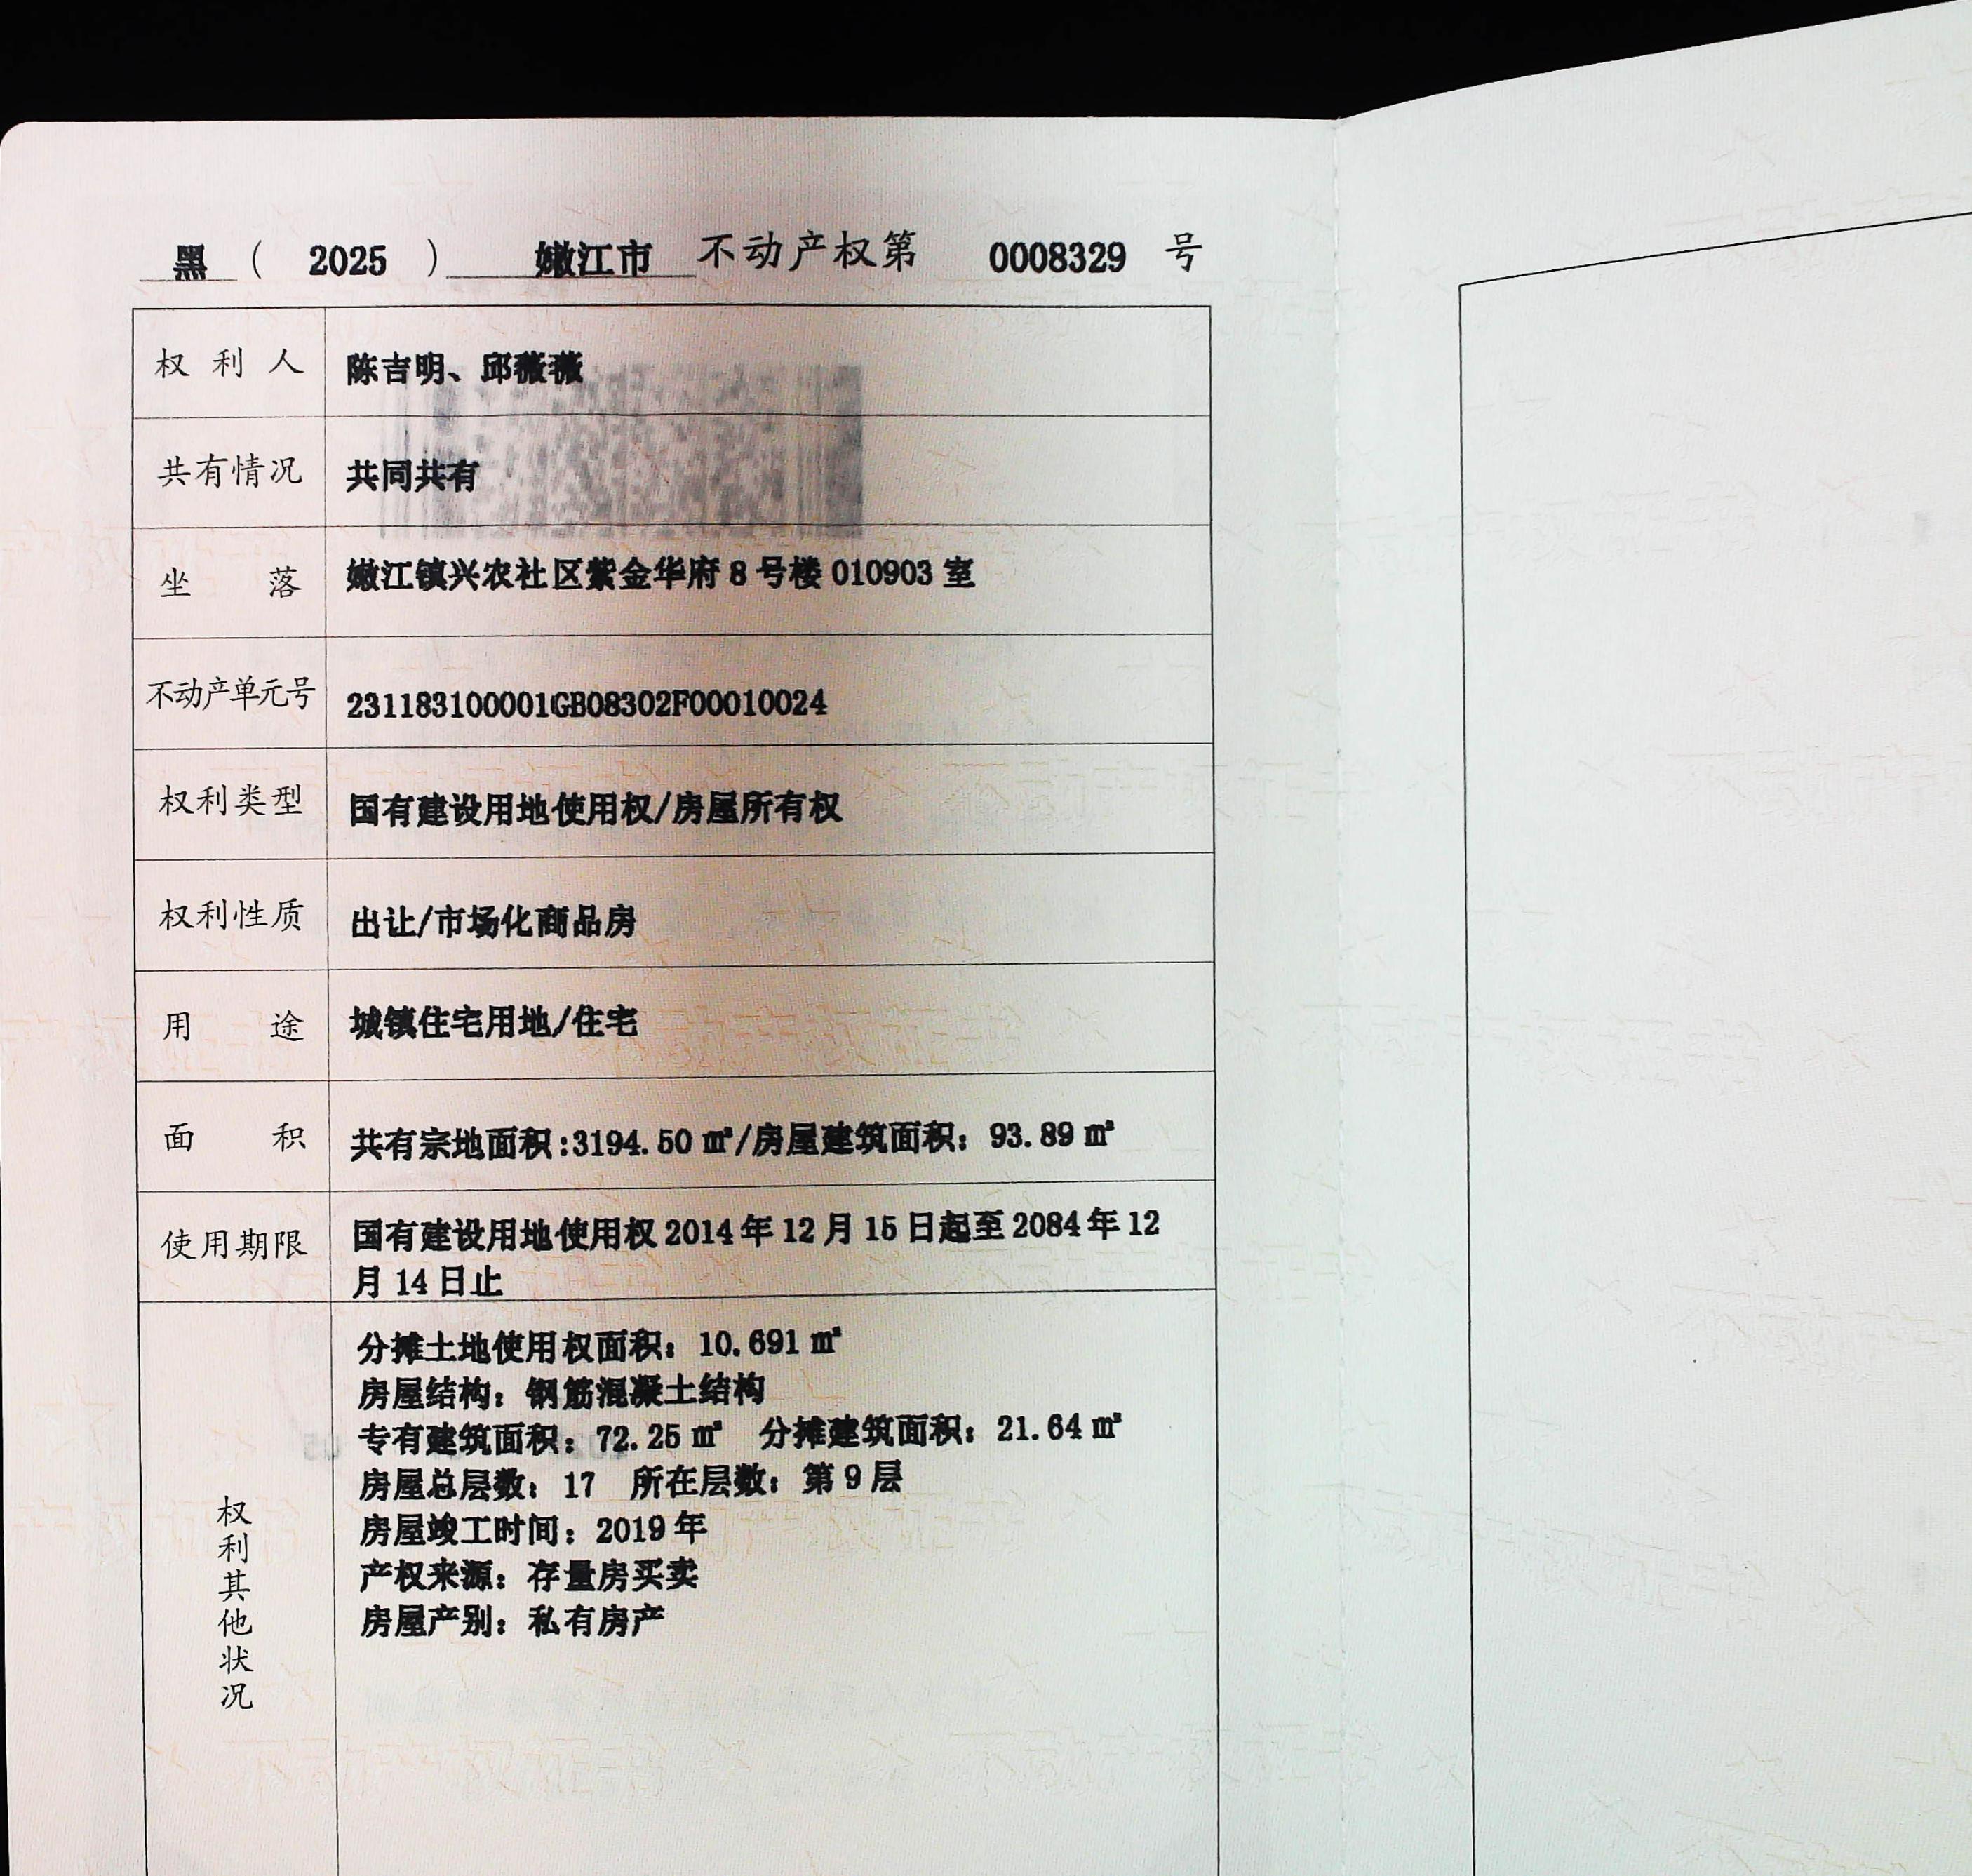 黑 ( 2025 ) 嫩江市 不动产权第 0008329 号
权利人 陈吉明、邱薇薇
共有情况 共同共有
坐落 嫩江镇兴农社区紫金华府 8 号楼 010903 室
不动产单元号 231183100001GB08302F00010024
权利类型 国有建设用地使用权/房屋所有权
权利性质 出让/市场化商品房
用途 城镇住宅用地/住宅
面积 共有宗地面积:3194.50 ㎡/房屋建筑面积：93.89 ㎡
使用期限 国有建设用地使用权 2014 年 12 月 15 日起至 2084 年 12
月 14 日止
权利其他状况
分摊土地使用权面积：10.691 ㎡
房屋结构：钢筋混凝土结构
专有建筑面积：72.25 ㎡ 分摊建筑面积：21.64 ㎡
房屋总层数：17 所在层数：第 9 层
房屋竣工时间：2019 年
产权来源：存量房买卖
房屋产别：私有房产